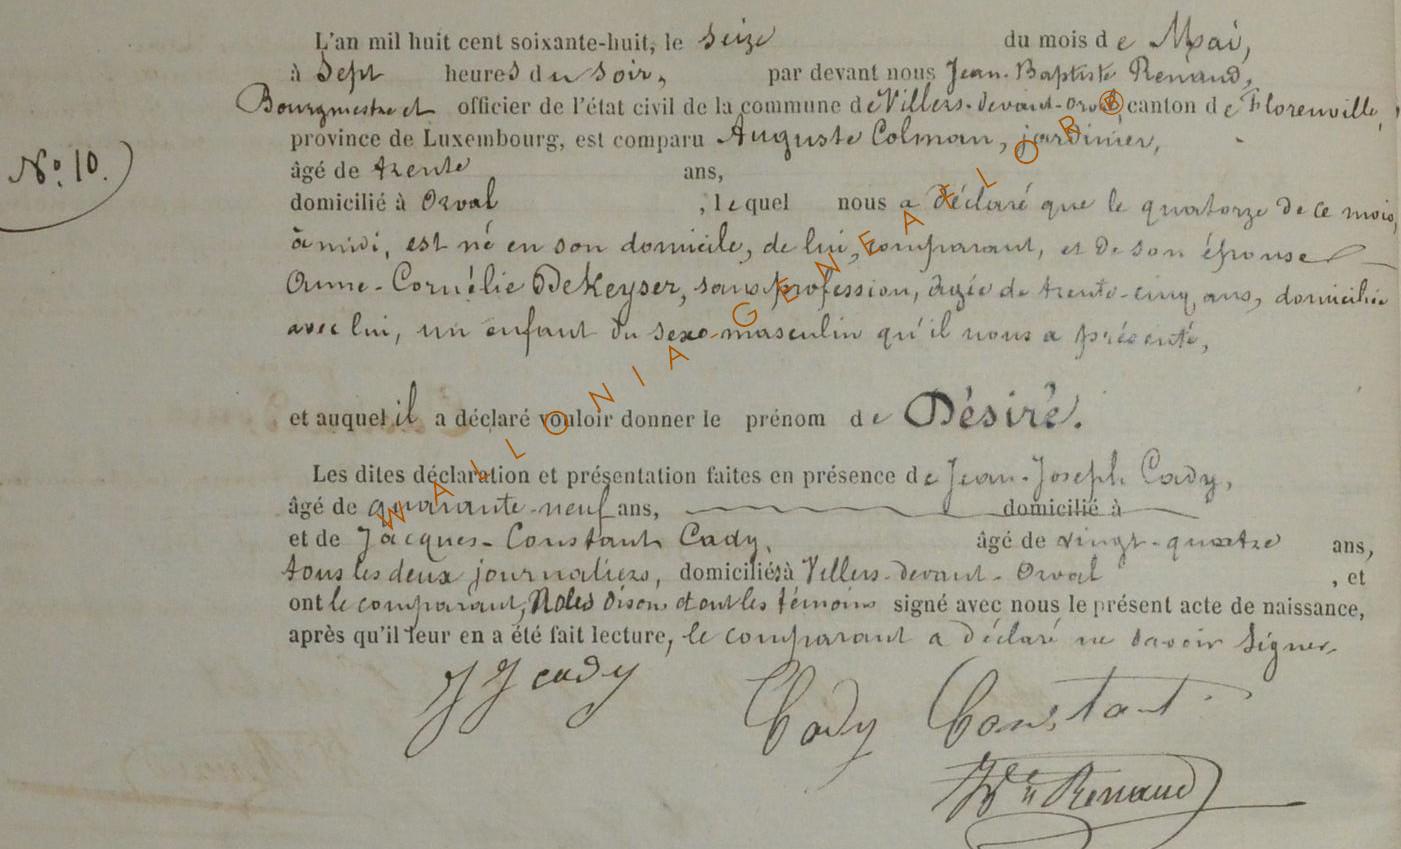 L'an mil huit cent soixante-huit, le seize du mois de Mai,
à Sept heures du soir, par devant nous Jean-Baptiste Renaud,
Bourgmestre et officier de l'état civil de la commune de Villers-devant-Orval canton de Florenville,
province de Luxembourg, est comparu Auguste Colman, jardinier,
N° 10.
âgé de trente ans,
domicilié à Orval, lequel nous a déclaré que le quatorze de ce mois,
à midi, est né en son domicile, de lui, comparant, et de son épouse
Anne-Cornélie DeKeyser, sans profession, âgée de trente-cinq ans, domiciliée
avec lui, un enfant du sexe masculin qu'il nous a présenté,
et auquel il a déclaré vouloir donner le prénom de Désiré.
Les dites déclaration et présentation faites en présence de Jean-Joseph Cady,
âgé de quarante-neuf ans, domicilié à
et de Jacques-Constant Cady, âgé de vingt-quatre ans,
tous les deux journaliers, domiciliés à Villers-devant-Orval, et
ont le comparant, disons et ont les témoins signé avec nous le présent acte de naissance,
après qu'il leur en a été fait lecture, le comparant a déclaré ne savoir signer.
J J cady
Cady Constant
Renaud
WALLONIA GENEALOR B